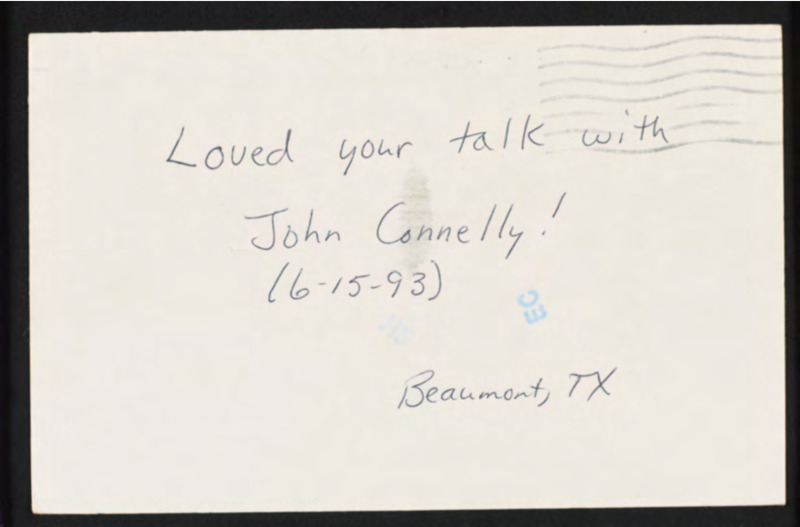 Loved your talk with
John Connelly!
(6-15-93)
CE
Beaumont, TX